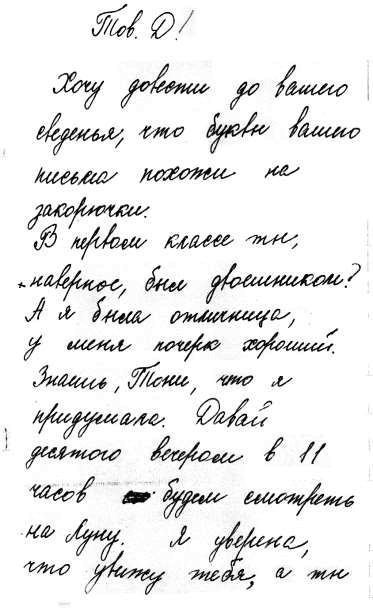 Тов. Д!
Хочу довести до вашего
сведенья, что буквы вашего
письма похожи на
закорючки.
В первом классе ты,
наверное, был двоешником?
А я была отличница,
у меня почерк хороший.
Знаешь, Тони, что я
придумала. Давай
десятого вечером в 11
часов будем смотреть
на Луну. Я уверена,
что увижу тебя, а ты